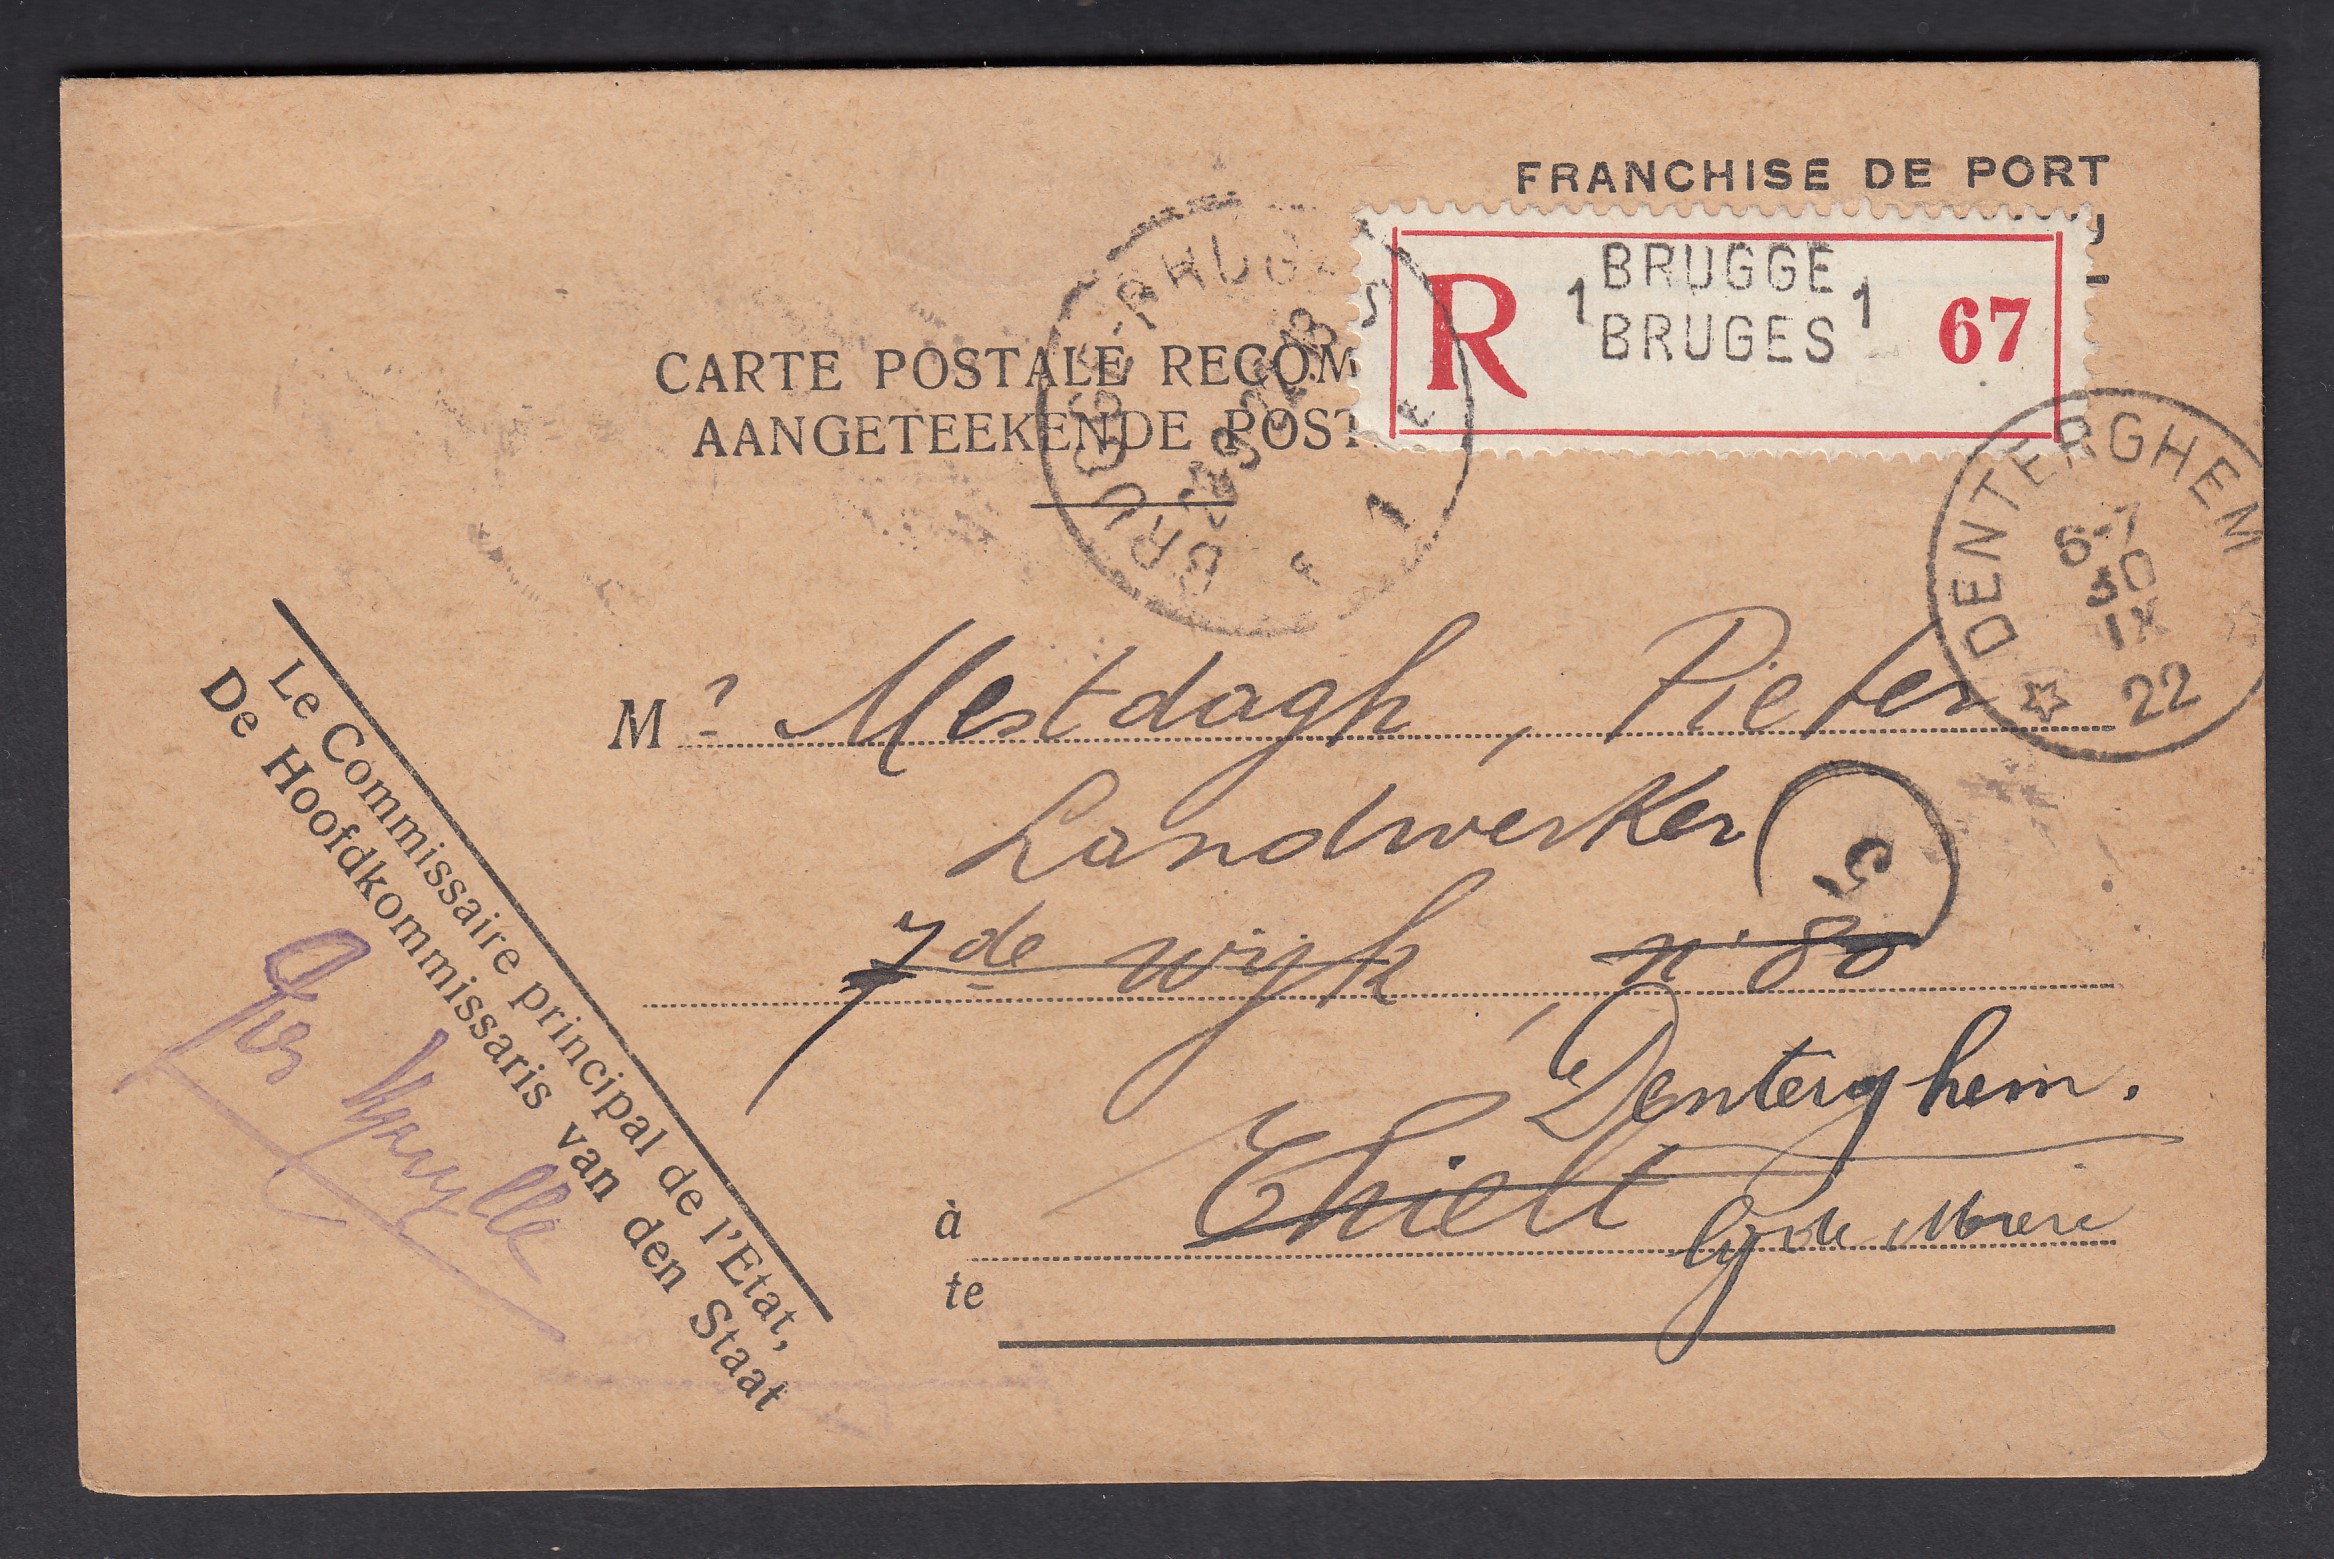 FRANCHISE DE PORT
R 1 BRUGGE 1 67
BRUGES
CARTE POSTALE RECOM
AANGETEEKENDE POST
BRUGGE-BRUGES
F 1 F
DENTERGHEM
6-7
30
IX
22
Mr Mestdagh, Pieter
Landwerker
5
7de wijk, n° 80
Denterghem.
à Thielt
te
Le Commissaire principal de l'Etat,
De Hoofdkommissaris van den Staat